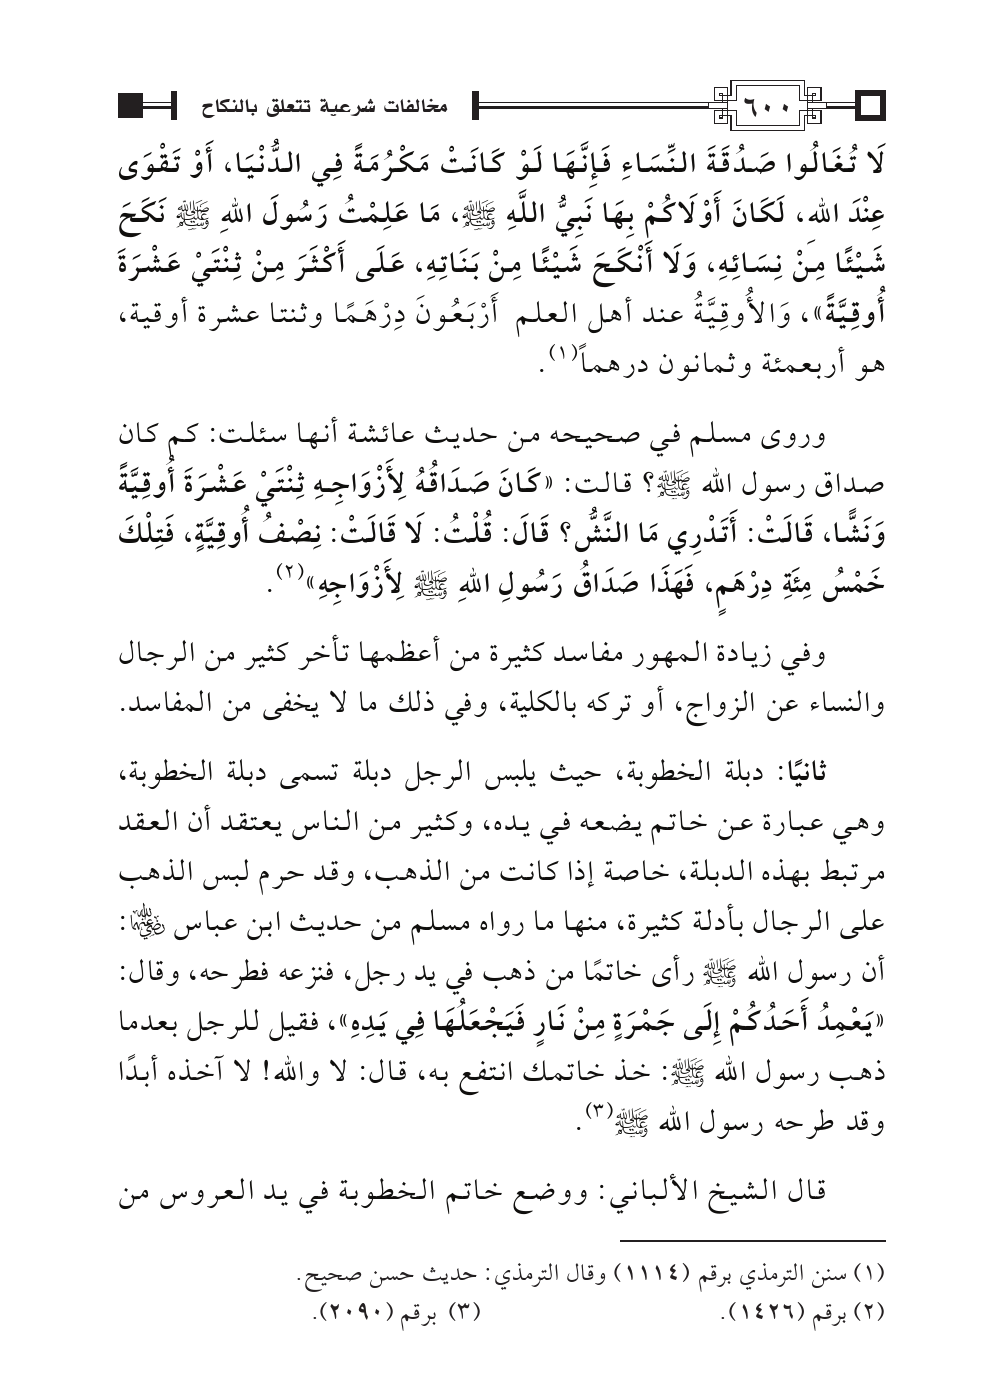 ٦٠٠ مخالفات شرعية تتعلق بالنكاح
لَا تُغَالُوا صَدُقَةَ النِّسَاءِ فَإِنَّهَا لَوْ كَانَتْ مَكْرُمَةً فِي الدُّنْيَا، أَوْ تَقْوَى
عِنْدَ اللهِ، لَكَانَ أَوْلَاكُمْ بِهَا نَبِيُّ اللَّهِ ﷺ، مَا عَلِمْتُ رَسُولَ اللهِ ﷺ نَكَحَ
شَيْئًا مِنْ نِسَائِهِ، وَلَا أَنْكَحَ شَيْئًا مِنْ بَنَاتِهِ، عَلَى أَكْثَرَ مِنْ ثِنْتَيْ عَشْرَةَ
أُوقِيَّةً»، وَالأُوقِيَّةُ عند أهل العلم أَرْبَعُونَ دِرْهَمًا وثنتا عشرة أوقية،
هو أربعمئة وثمانون درهماً(١).
وروى مسلم في صحيحه من حديث عائشة أنها سئلت: كم كان
صداق رسول الله ﷺ؟ قالت: «كَانَ صَدَاقُهُ لِأَزْوَاجِهِ ثِنْتَيْ عَشْرَةَ أُوقِيَّةً
وَنَشًّا، قَالَتْ: أَتَدْرِي مَا النَّشُّ؟ قَالَ: قُلْتُ: لَا قَالَتْ: نِصْفُ أُوقِيَّةٍ، فَتِلْكَ
خَمْسُ مِئَةِ دِرْهَمٍ، فَهَذَا صَدَاقُ رَسُولِ اللهِ ﷺ لِأَزْوَاجِهِ»(٢).
وفي زيادة المهور مفاسد كثيرة من أعظمها تأخر كثير من الرجال
والنساء عن الزواج، أو تركه بالكلية، وفي ذلك ما لا يخفى من المفاسد.
ثانيًا: دبلة الخطوبة، حيث يلبس الرجل دبلة تسمى دبلة الخطوبة،
وهي عبارة عن خاتم يضعه في يده، وكثير من الناس يعتقد أن العقد
مرتبط بهذه الدبلة، خاصة إذا كانت من الذهب، وقد حرم لبس الذهب
على الرجال بأدلة كثيرة، منها ما رواه مسلم من حديث ابن عباس رضي الله عنهما:
أن رسول الله ﷺ رأى خاتمًا من ذهب في يد رجل، فنزعه فطرحه، وقال:
«يَعْمِدُ أَحَدُكُمْ إِلَى جَمْرَةٍ مِنْ نَارٍ فَيَجْعَلُهَا فِي يَدِهِ»، فقيل للرجل بعدما
ذهب رسول الله ﷺ: خذ خاتمك انتفع به، قال: لا والله! لا آخذه أبدًا
وقد طرحه رسول الله ﷺ(٣).
قال الشيخ الألباني: ووضع خاتم الخطوبة في يد العروس من
(١) سنن الترمذي برقم (١١١٤) وقال الترمذي: حديث حسن صحيح.
(٢) برقم (١٤٢٦). (٣) برقم (٢٠٩٠).